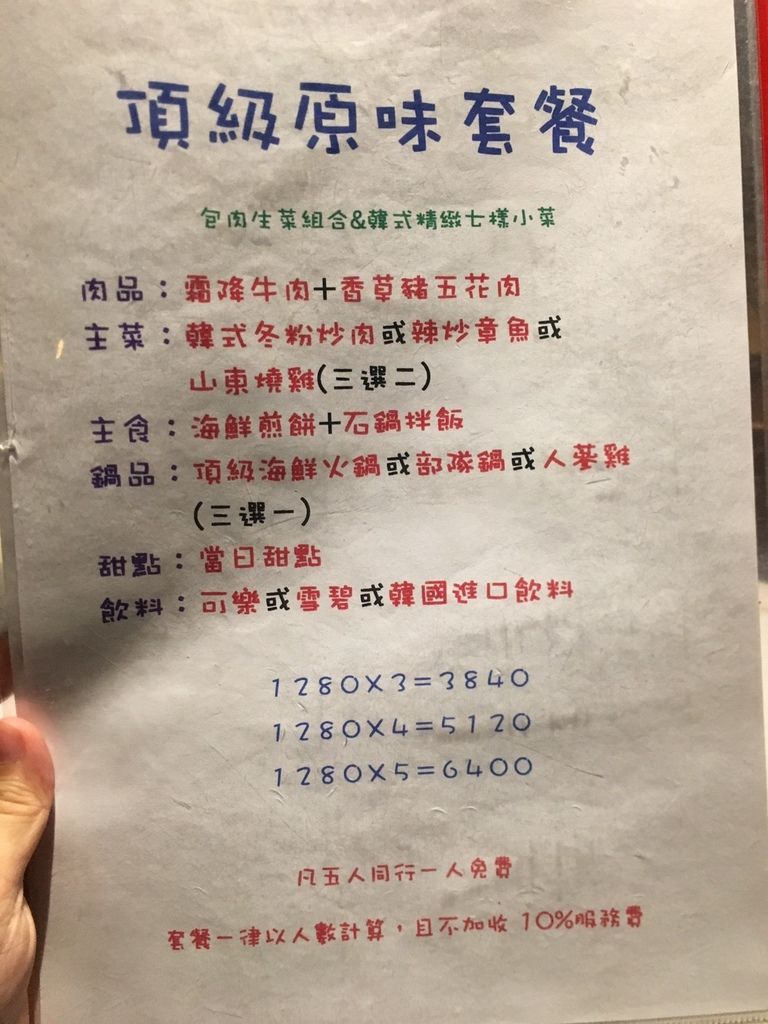 頂級原味套餐
包肉生菜組合&韓式精緻七樣小菜
肉品：霜降牛肉+香草豬五花肉
主菜：韓式冬粉炒肉或辣炒章魚或
山東燒雞(三選二)
主食：海鮮煎餅+石鍋拌飯
鍋品：頂級海鮮火鍋或部隊鍋或人蔘雞
(三選一)
甜點：當日甜點
飲料：可樂或雪碧或韓國進口飲料
1280X3=3840
1280X4=5120
1280X5=6400
凡五人同行一人免費
套餐一律以人數計算，且不加收 10%服務費